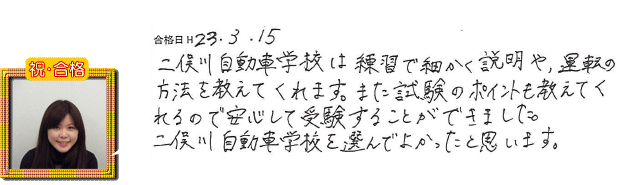 合格日 H 23.3.15
二俣川自動車学校は練習で細かく説明や、運転の
方法を教えてくれます。また試験のポイントも教えてく
れるので安心して受験することができました。
二俣川自動車学校を選んでよかったと思います。
祝・合格